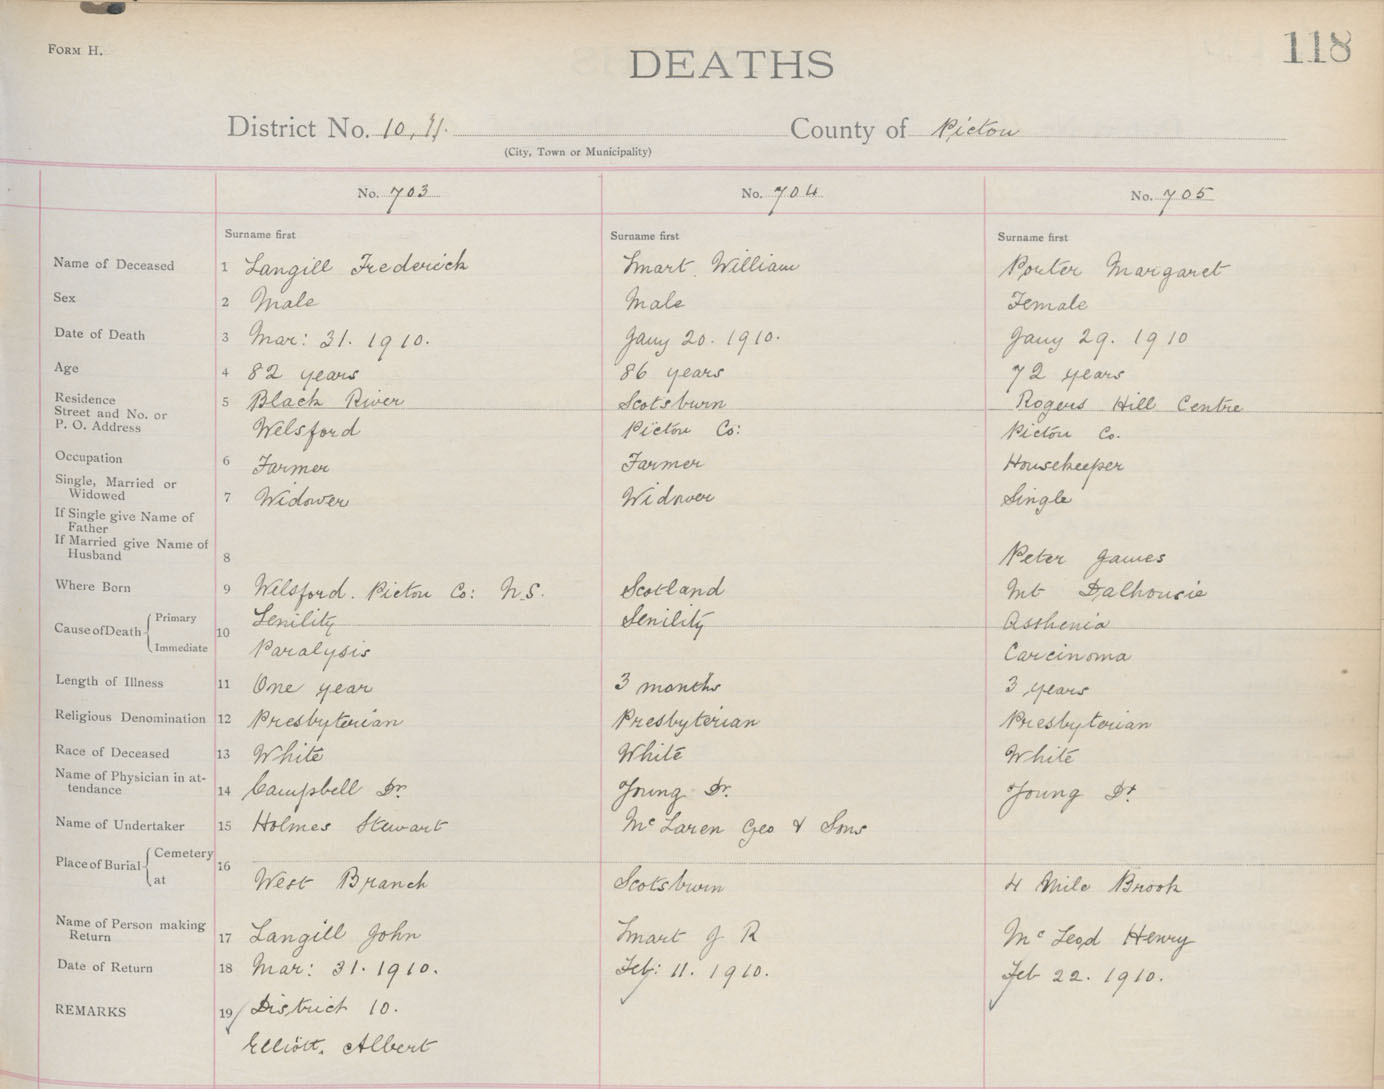 FORM H.
DEATHS
118
District No. 10, 11. County of Pictou
(City, Town or Municipality)
No. 703 No. 704 No. 705
Surname first Surname first Surname first
Name of Deceased 1 Langill Frederick Smart William Porter Margaret
Sex 2 Male Male Female
Date of Death 3 Mar: 31. 1910. Jany 20. 1910. Jany 29. 1910
Age 4 82 years 86 years 72 years
Residence 5 Black River Scotsburn Rogers Hill Centre
Street and No. or
P. O. Address Welsford Pictou Co: Pictou Co.
Occupation 6 Farmer Farmer Housekeeper
Single, Married or
Widowed 7 Widower Widower Single
If Single give Name of
Father
If Married give Name of
Husband 8 Peter James
Where Born 9 Welsford. Pictou Co: N.S. Scotland Mt Dalhousie
Cause of Death Primary 10 Senility Senility Asthenia
Immediate Paralysis Carcinoma
Length of Illness 11 One year 3 months 3 years
Religious Denomination 12 Presbyterian Presbyterian Presbyterian
Race of Deceased 13 White White White
Name of Physician in at-
tendance 14 Campbell Dr. Young Dr. Young Dr.
Name of Undertaker 15 Holmes Stewart McLaren Geo & Sons
Place of Burial Cemetery 16
at West Branch Scotsburn 4 Mile Brook
Name of Person making
Return 17 Langill John Smart J R McLeod Henry
Date of Return 18 Mar: 31. 1910. Feb: 11. 1910. Feb 22. 1910.
REMARKS 19 District 10.
Elliott, Albert